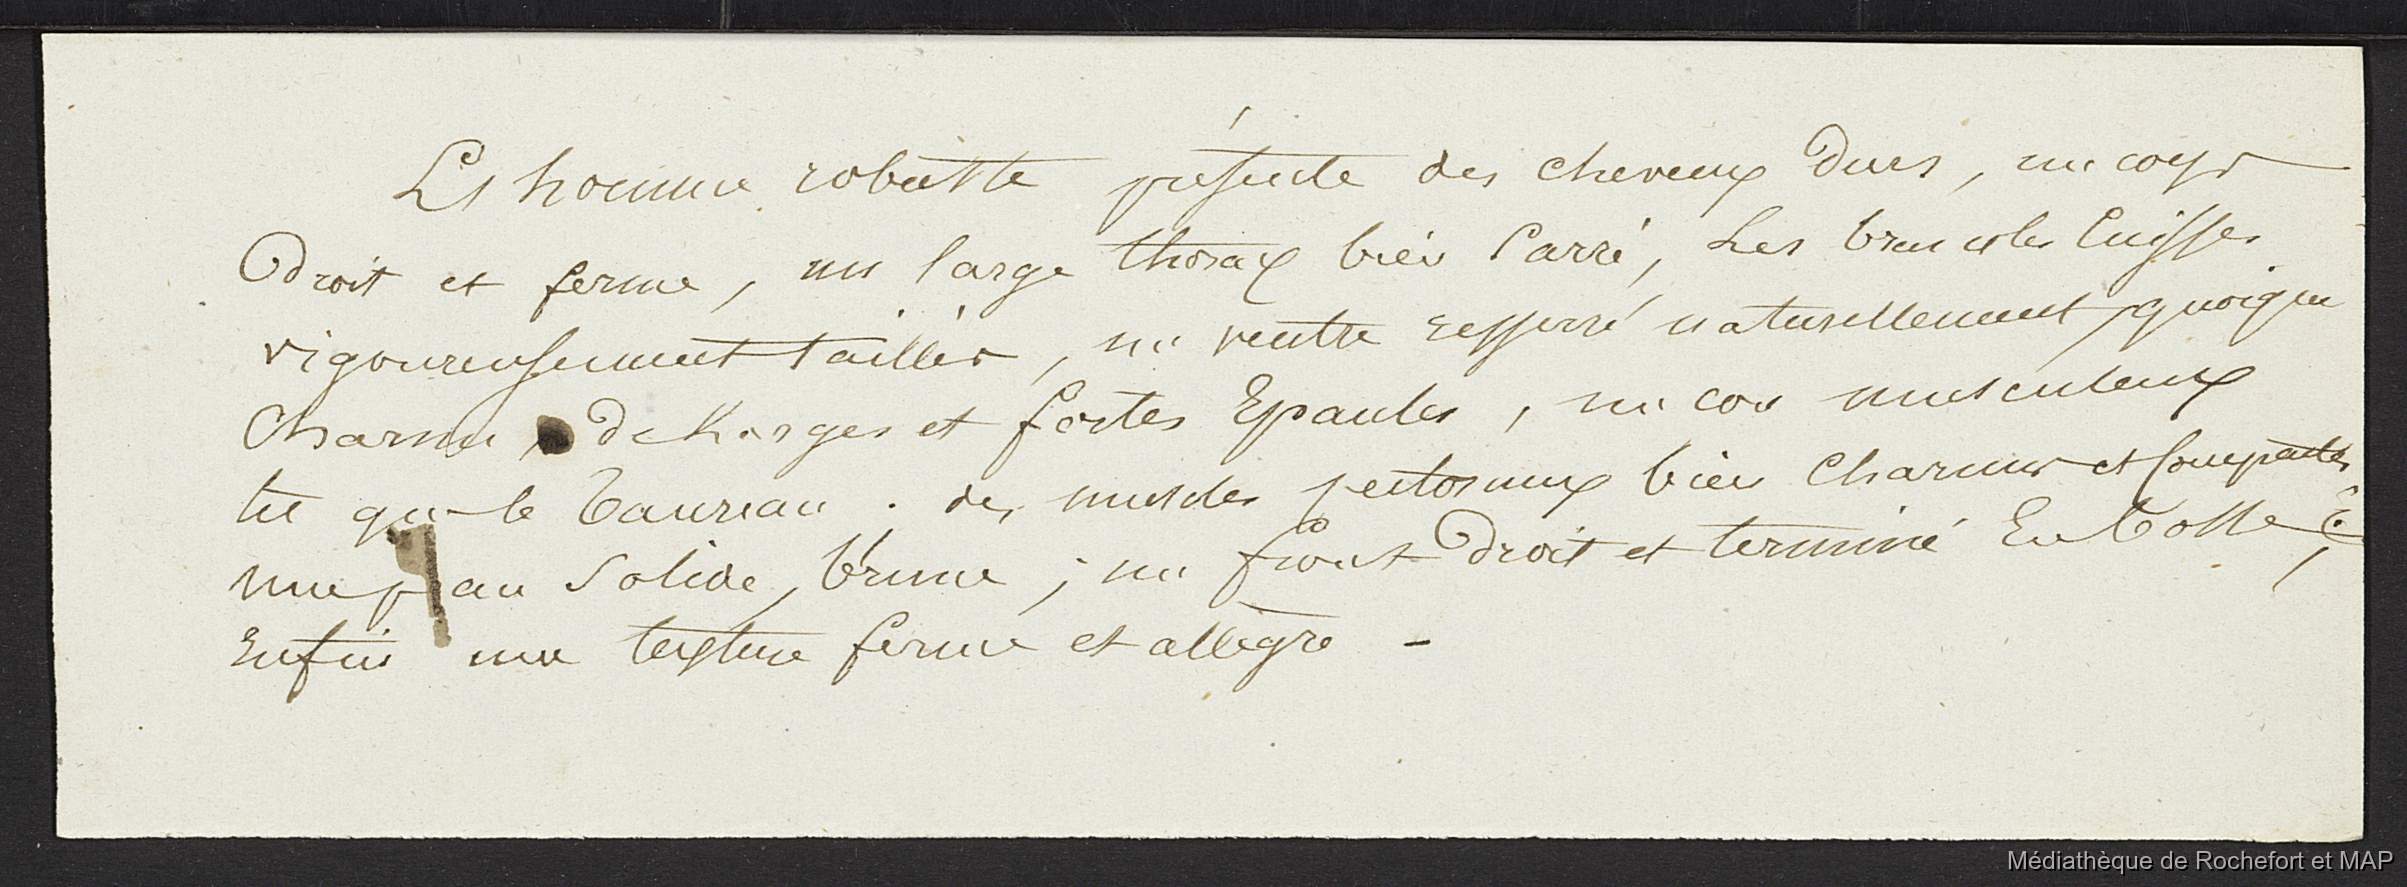 L'homme robuste présente des cheveux durs, un corps
droit et ferme, un large thorax bien Carré, Les bras et les Cuisses
vigoureusement taillés, un ventre resserré naturellement quoique
Charnu, de larges et fortes Epaules, un cou musculeux
tel que le Taureau. des muscles pectoraux bien Charnus et Compactes,
une peau Solide, brune; un front droit et terminé En
Enfin une texture ferme et allègre -
Médiathèque de Rochefort et MAP